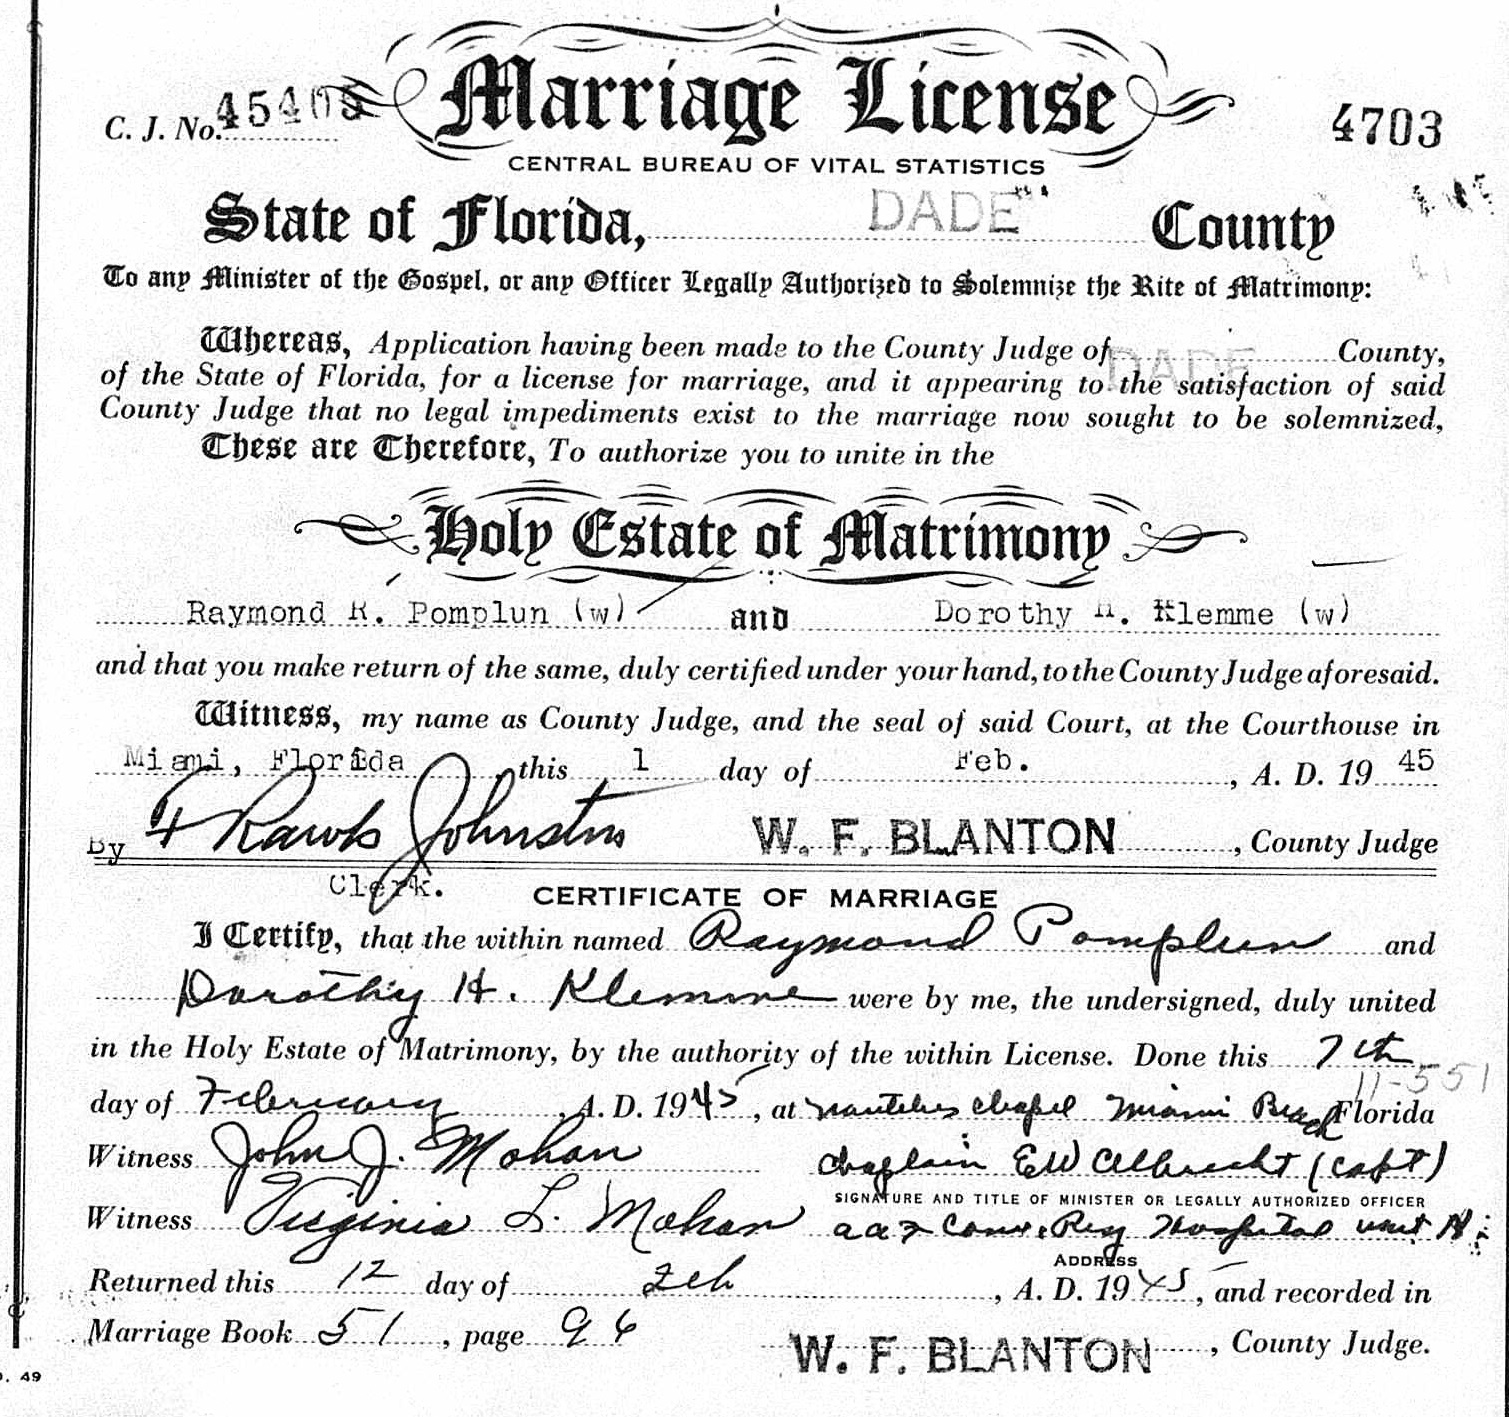 Marriage License
C. J. No. 45405
4703
CENTRAL BUREAU OF VITAL STATISTICS
State of Florida, DADE County
To any Minister of the Gospel, or any Officer Legally Authorized to Solemnize the Rite of Matrimony:
Whereas, Application having been made to the County Judge of DADE County,
of the State of Florida, for a license for marriage, and it appearing to the satisfaction of said
County Judge that no legal impediments exist to the marriage now sought to be solemnized,
These are Therefore, To authorize you to unite in the
Holy Estate of Matrimony
Raymond R. Pomplun (w) and Dorothy H. Klemme (w)
and that you make return of the same, duly certified under your hand, to the County Judge aforesaid.
Witness, my name as County Judge, and the seal of said Court, at the Courthouse in
Miami, Florida, this 1 day of Feb., A. D. 19 45
By Johnston W. F. BLANTON, County Judge
Clerk.
CERTIFICATE OF MARRIAGE
I Certify, that the within named Raymond Pomplun and
Dorothy H. Klemme were by me, the undersigned, duly united
in the Holy Estate of Matrimony, by the authority of the within License. Done this 7th
11-551
day of February, A. D. 1945, at Nautilus Chapel Miami Beach Florida
Witness John J. Mohan Chaplain EW Albrecht (Capt)
SIGNATURE AND TITLE OF MINISTER OR LEGALLY AUTHORIZED OFFICER
Witness Virginia L. Mohan AAF Conv. Hospital Unit
ADDRESS
Returned this 12 day of Feb, A. D. 1945, and recorded in
Marriage Book 51, page 96
W. F. BLANTON, County Judge.
49